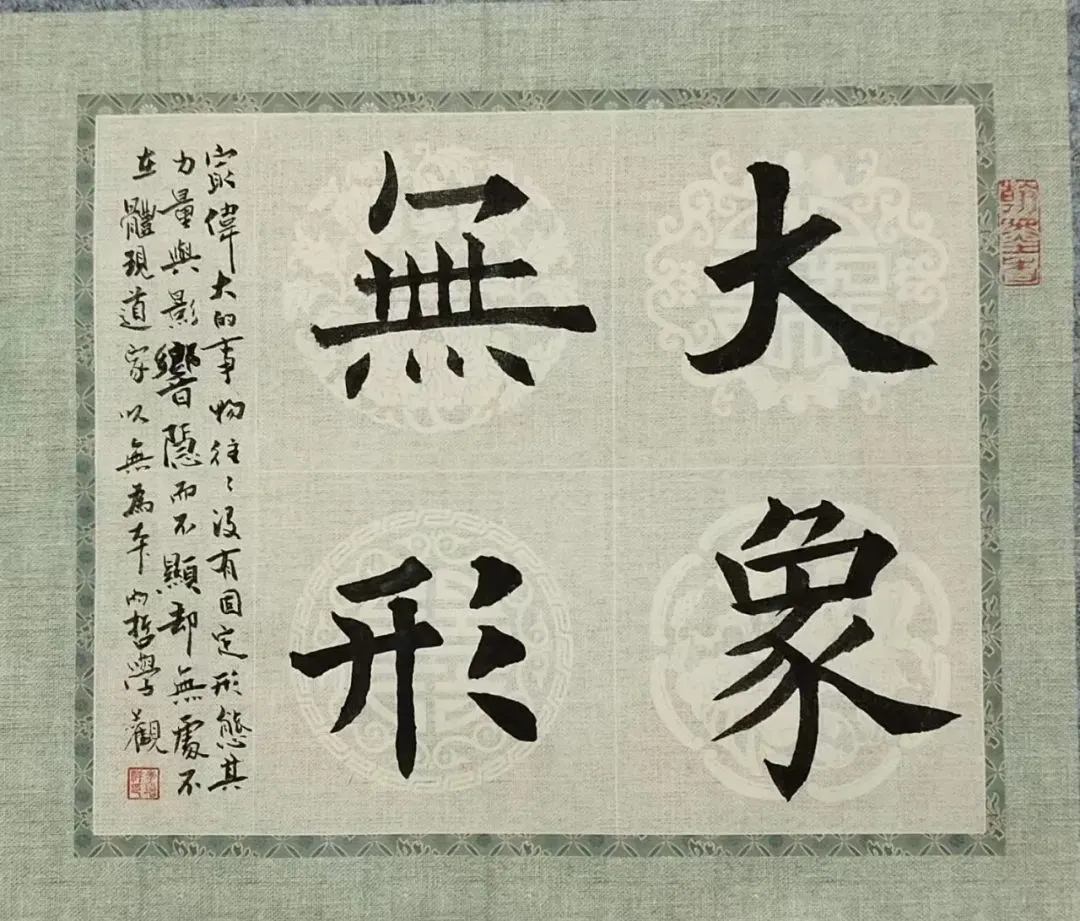 大象
無形
寂偉大的事物往々没有固定形態其
力量與影響隱而不顯却無處不
在體現道家以無為本的哲學觀